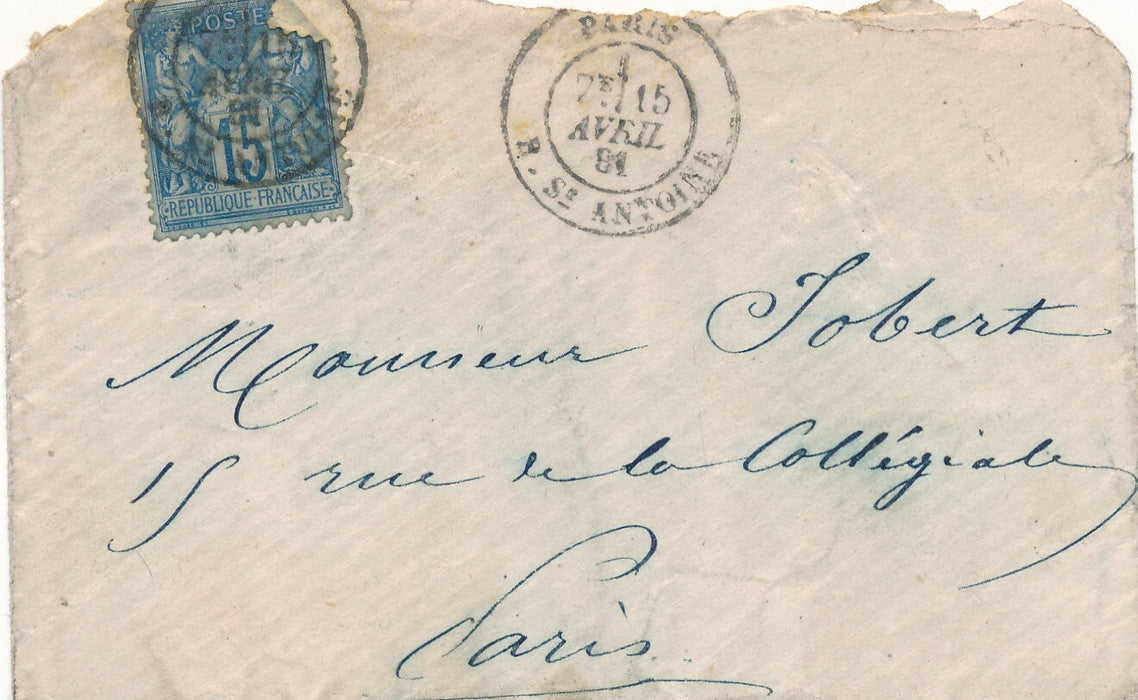 POSTE
15
REPUBLIQUE FRANÇAISE
PARIS
7E 15
AVRIL
81
R. St ANTOINE
Monsieur Jobert
15 rue de la Collégiale
Paris